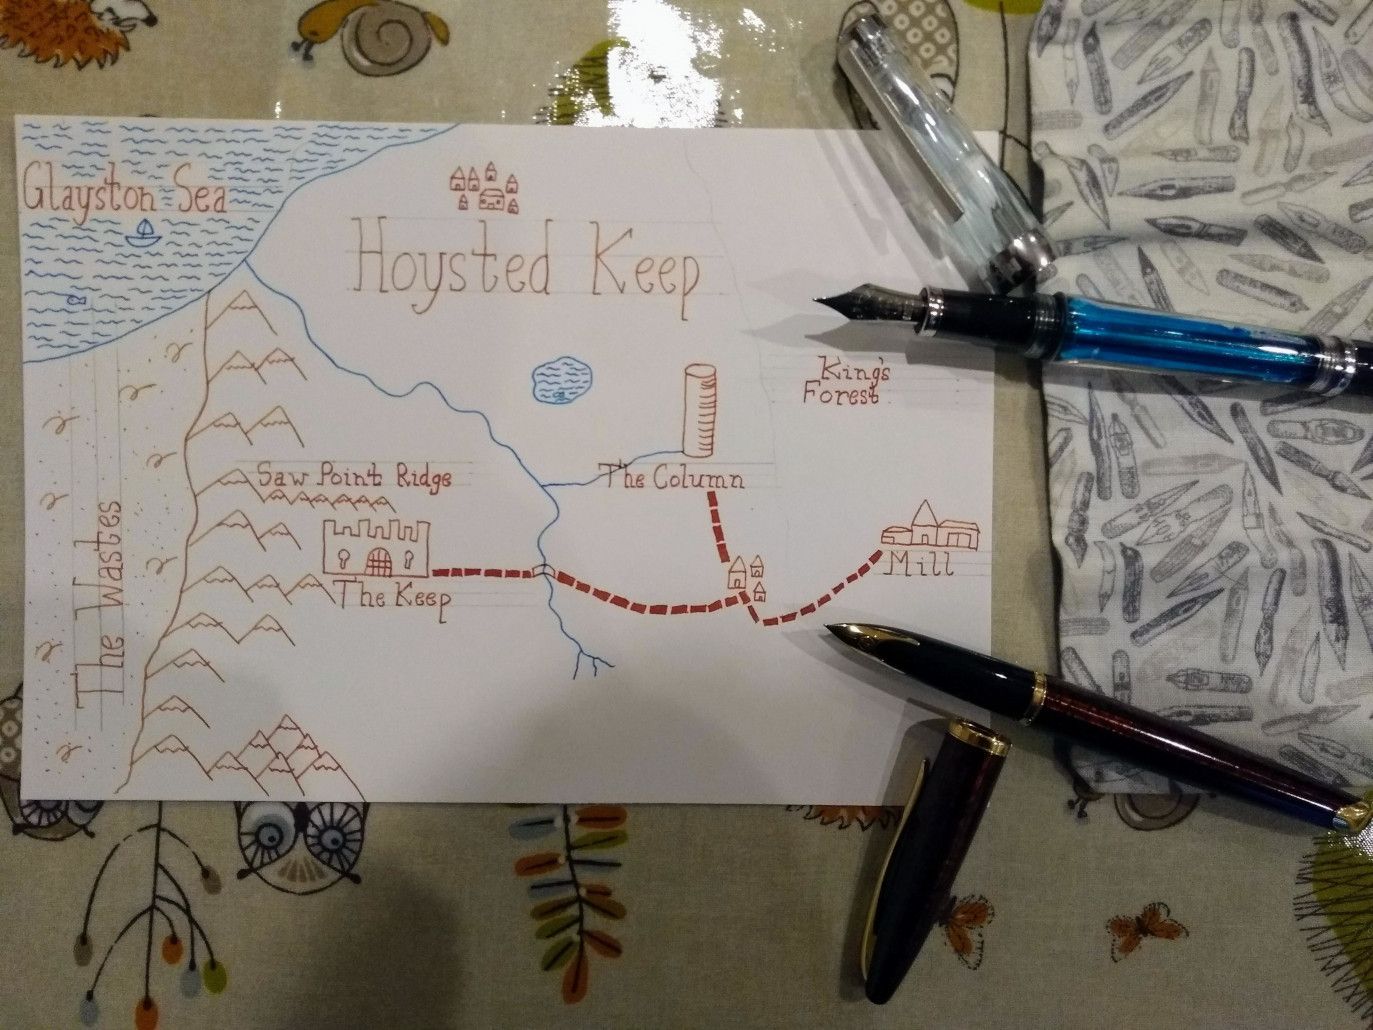 Glayston Sea
Hoysted Keep
King's
Forest
Saw Point Ridge
The Column
The Wastes
The Keep
Mill